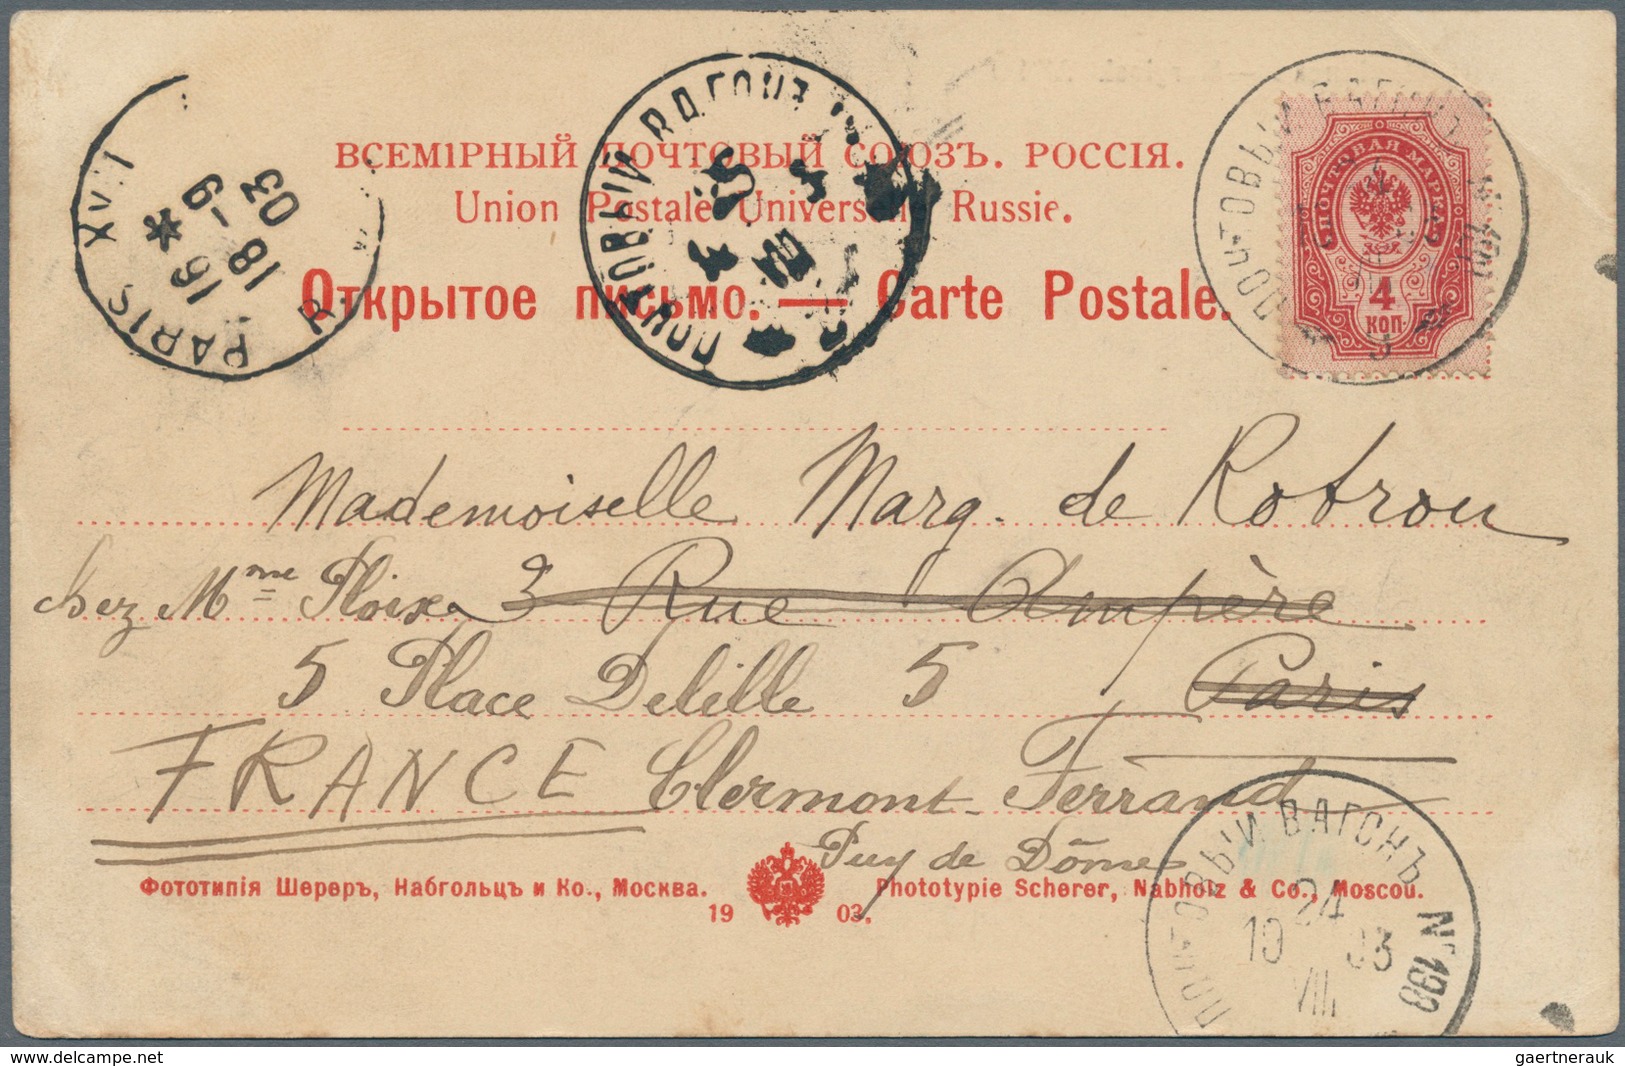 ВСЕМІРНЫЙ ПОЧТОВЫЙ СОЮЗЪ. РОССІЯ.
Union Postale Universelle Russie.
Открытое письмо. — Carte Postale.
PARIS XVII
R.
16 *
18 -9
03
ПОЧТОВЫЙ ВАГОНЪ
ПОЧТОВЫЙ ВАГОНЪ
ПОЧТОВАЯ МАРКА
4
КОП.
Mademoiselle Marg. de Rotrou
chez Mme Ploix 3 Rue Ampère
5 Place Delille 5 Paris
FRANCE Clermont-Ferrand
Puy de Dôme
Фототипія Шереръ, Набгольцъ и Ко., Москва.
Phototypie Scherer, Nabholz & Co., Moscou.
19 03.
ПОЧТОВЫЙ ВАГОНЪ № 190
24
10 03
VIII
www.delcampe.net
gaertnerauk